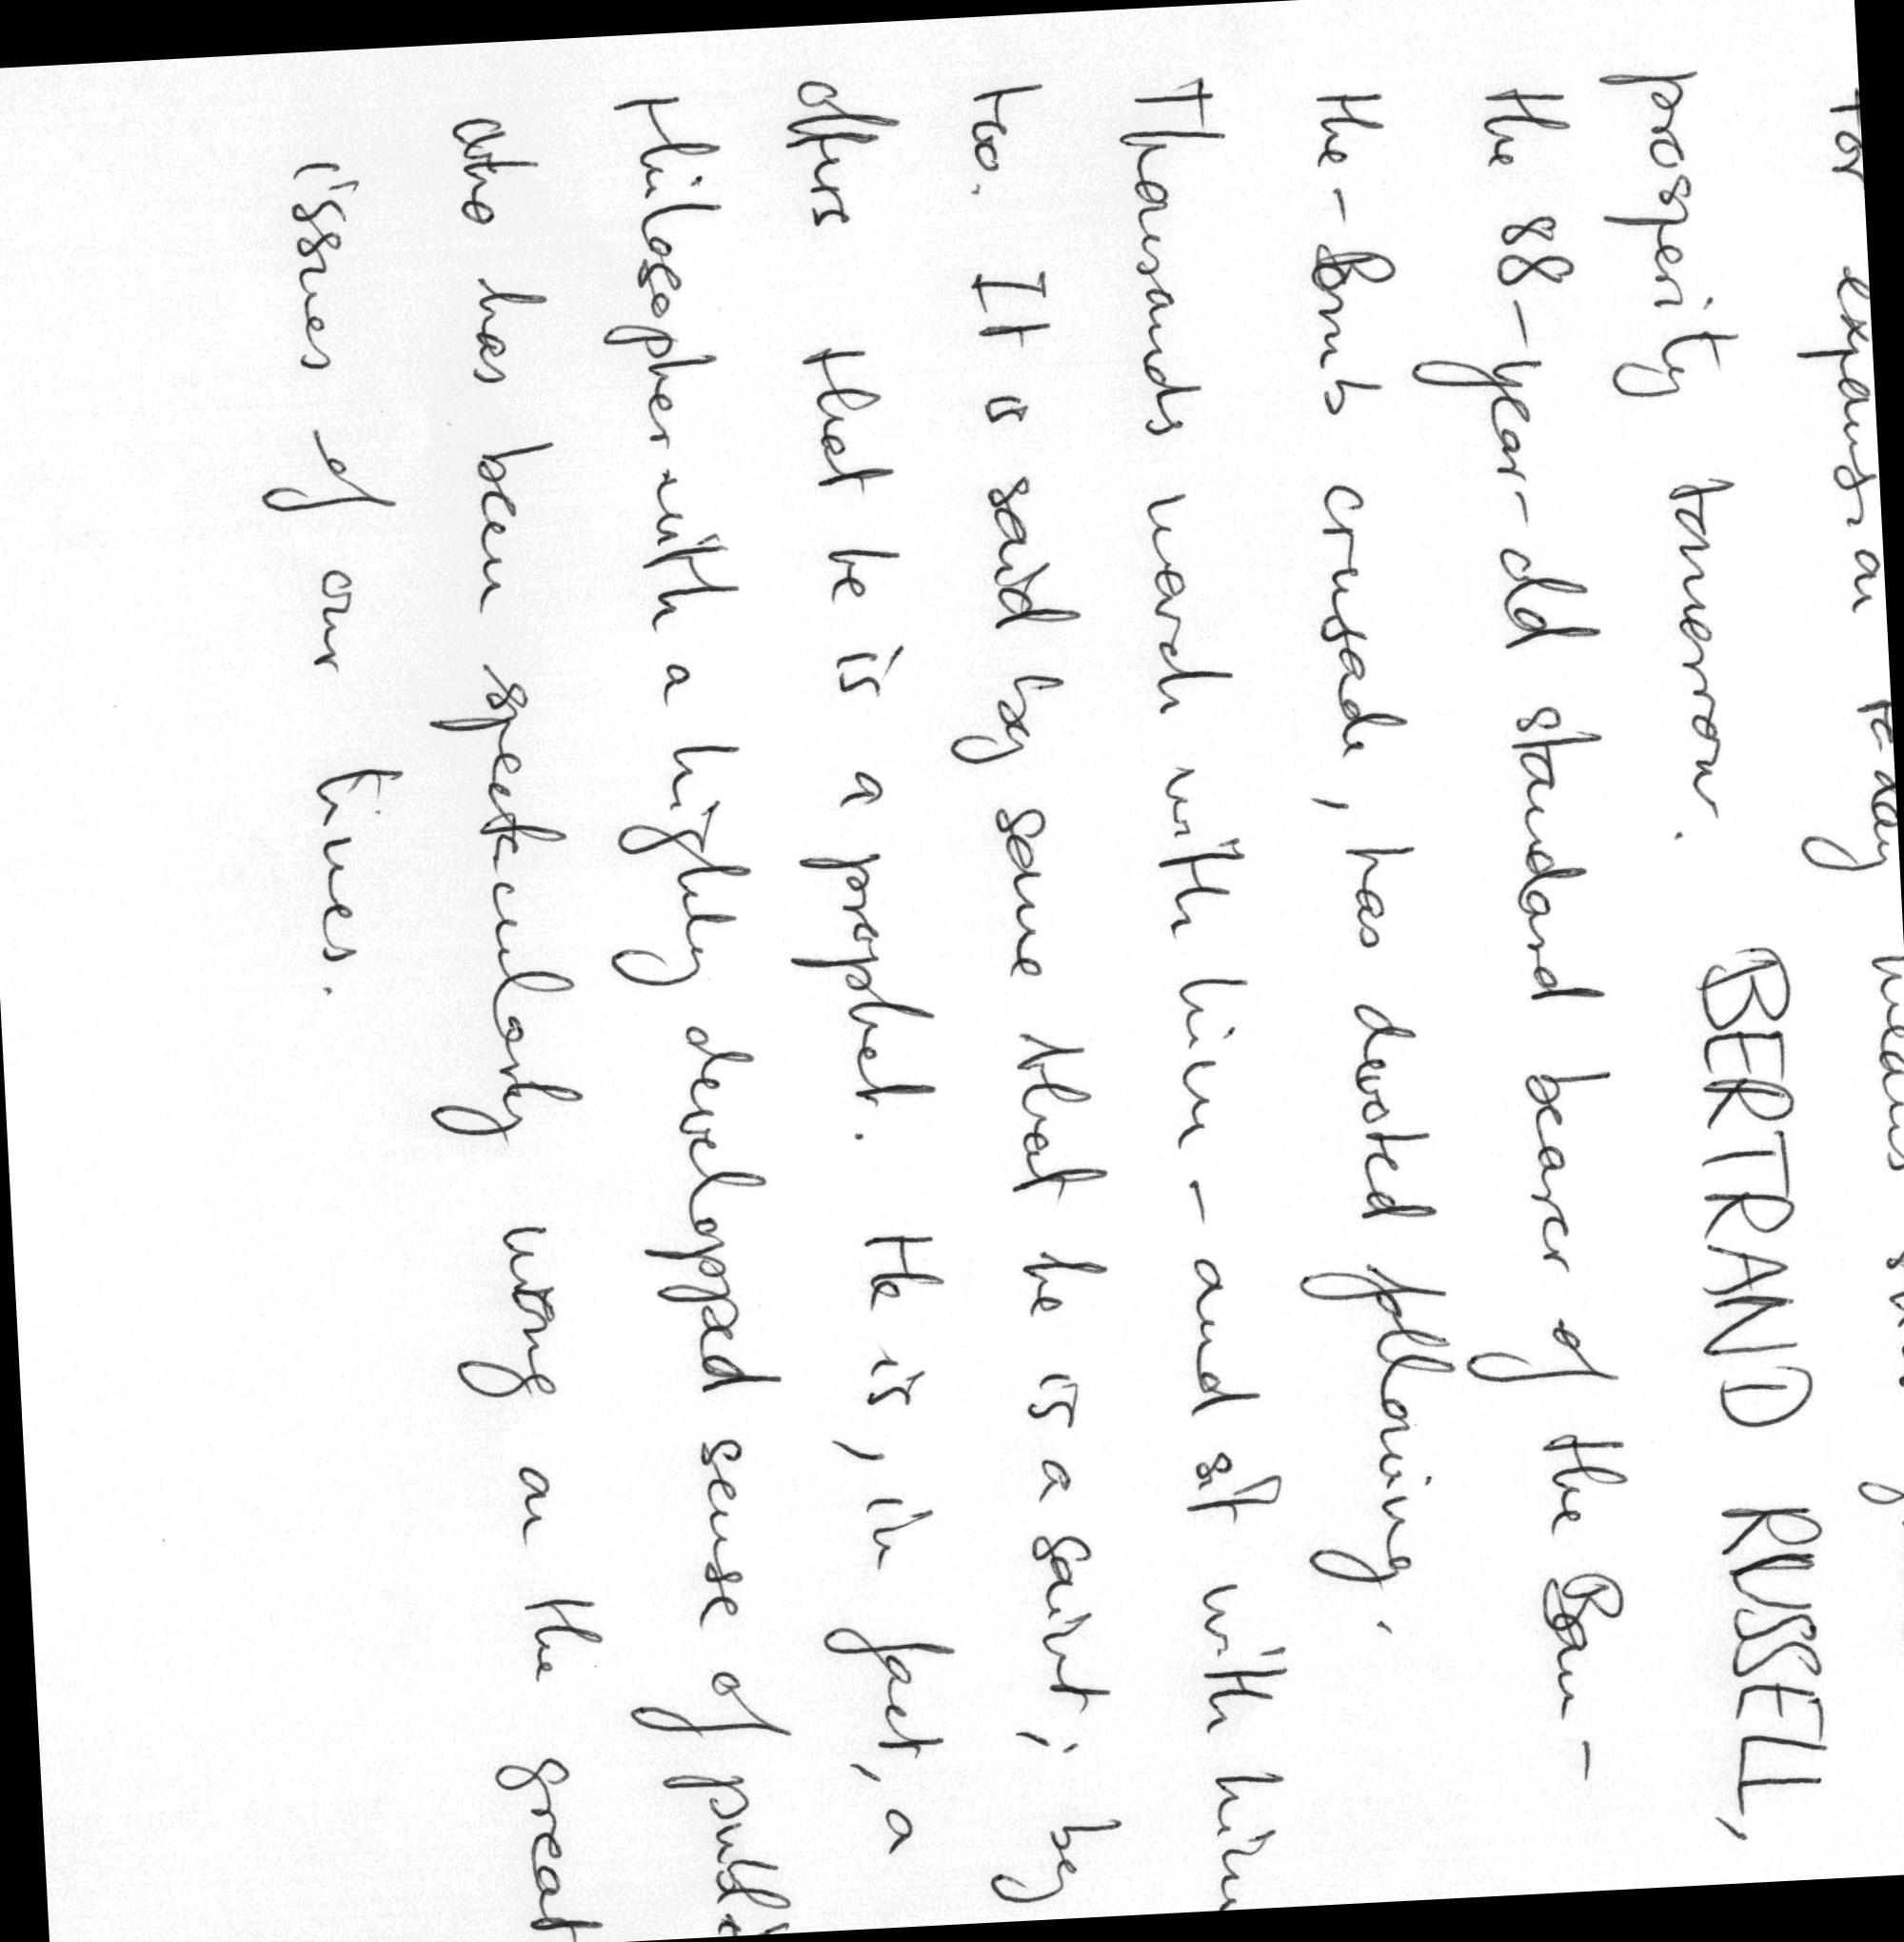 for expansion to-day means
prosperity tomorrow. BERTRAND RUSSELL,
the 88-year-old standard bearer of the Ban-
the-Bomb crusade, has devoted following.
Thousands march with him - and sit with him
too. It is said by some that he is a saint; by
others that he is a prophet. He is, in fact, a
philosopher with a highly developped sense of publi
who has been spectacularly wrong on the great
issues of our times.